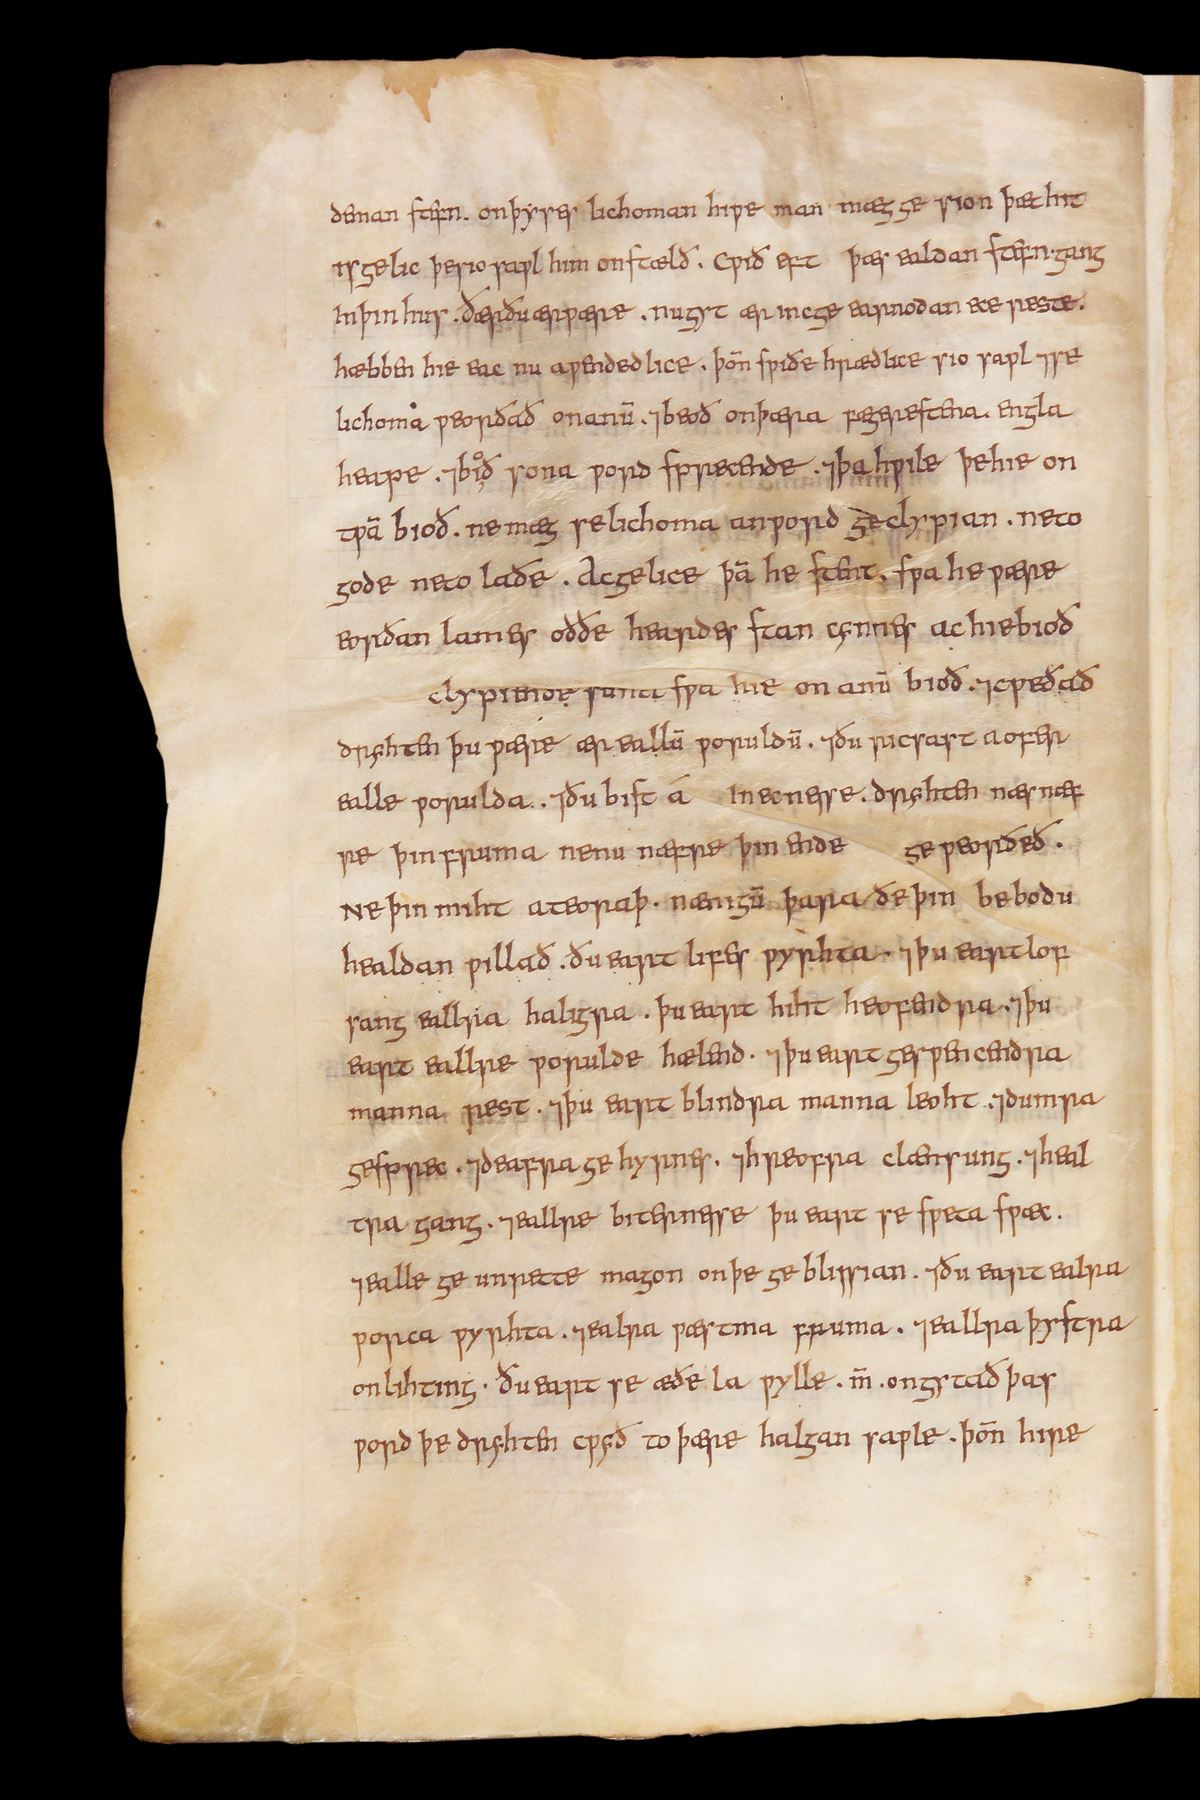 denan stefn. onþyses lichoman hiƿe man mæg ge sion þæt hit
is gelic þe sio sapl him onstælð. Cƿið eft þæs ealdan stefn. gang
inþin hus. ðær ðu ær ƿære. nu gyt ær inc ge earnod an ece reste.
hæbben hie eac nu aƿended lice. þoñ sƿiðe hrædlice sio saƿl ⁊ se
lichoma ƿeorðað on anū. ⁊ beoð on þæra fægerestena. engla
heaƿe. ⁊ bið sona ƿord sprecende. ⁊ þa hƿile þe hie on
tƿā bioð. ne mæg se lichoma an ƿord ge clypian. ne to
gode ne to laðe. Ac gelice þā he stent. sƿa he ƿære
eorðan lames oððe heardes stan cynnes ac hie bioð
clypiende sƿa hie on anū bioð. ⁊ cƿeðað
dryhten þu ƿære ær eallū ƿoruldū. ⁊ ðu ricsast a ofer
ealle ƿorulda. ⁊ ðu bist á in ecnesse. dryhten næs næf
re þin fruma ne nu næfre þin ende ge ƿeorðeð.
Ne þin miht ateoraþ. nængū þara ðe þin be bodu
healdan ƿillað. ðu eart lifes ƿyrhta. ⁊ þu eart lof
sang ealra haligra. þu eart hiht heofendra. ⁊ þu
eart ealre ƿorulde hælend. ⁊ þu eart gesƿencendra
manna rest. ⁊ þu eart blindra manna leoht. ⁊ dumra
gesprec. ⁊ deafra ge hyrnes. ⁊ hreofra clænsung. ⁊ heal
tra gang. ⁊ ealre biternesse þu eart se sƿeta sƿæc.
⁊ ealle ge unrette magon on þe ge blissian. ⁊ ðu eart ealra
ƿorca ƿyrhta. ⁊ ealra ƿæstma fruma. ⁊ ealra þystra
onlihting. ðu eart se æðe la ƿylle. m̄. ongytað þas
ƿord þe dryhten cƿyð to þære halgan saƿle. þoñ hire